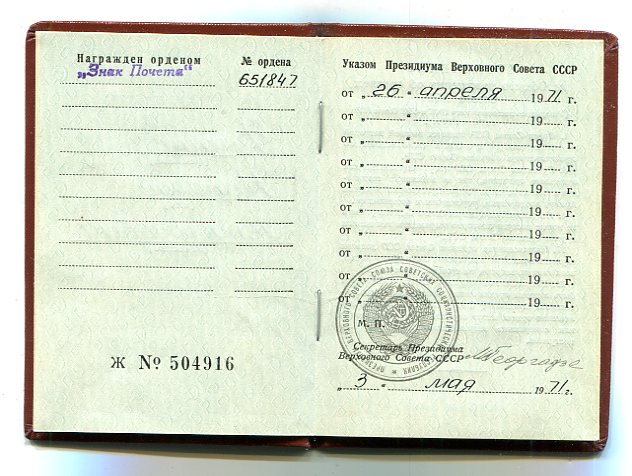 Награжден орденом
№ ордена
„Знак Почета“
651847
Ж № 504916
Указом Президиума Верховного Совета СССР
от „ 26 “ апреля 1971 г.
от „ “ 19 г.
от „ “ 19 г.
от „ “ 19 г.
от „ “ 19 г.
от „ “ 19 г.
от „ “ 19 г.
от „ “ 19 г.
от „ “ 19 г.
от „ “ 19 г.
ПРЕЗИДИУМ ВЕРХОВНОГО СОВЕТА СОЮЗА СОВЕТСКИХ СОЦИАЛИСТИЧЕСКИХ РЕСПУБЛИК
М. П.
Секретарь Президиума
Верховного Совета СССР
МГеоргадзе
„ 3 “ мая 1971 г.